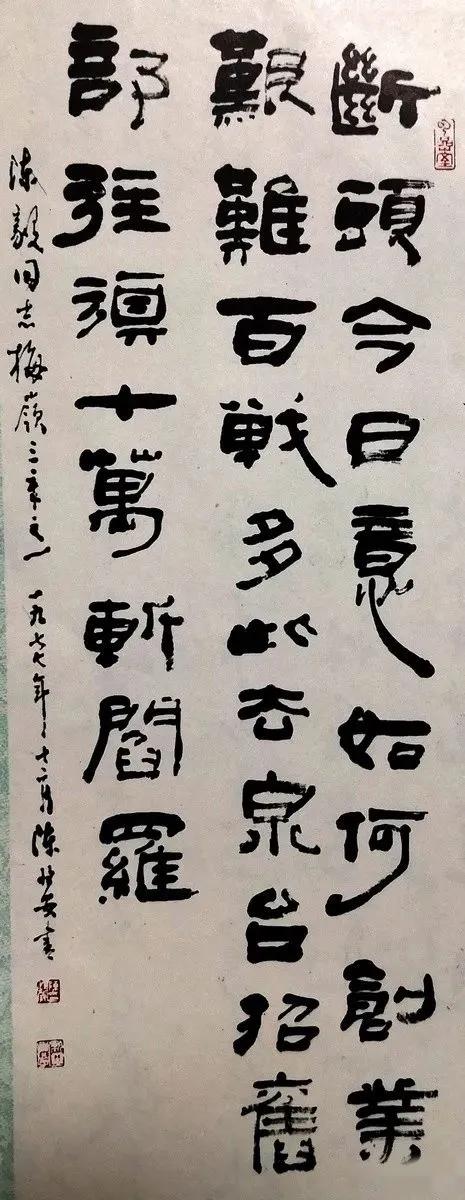 斷頭今日意如何創業
艱難百戦多此去泉台招舊
部旌旗十萬斬閻羅
陳毅同志梅嶺三章之一 一九七七年十二月陳書